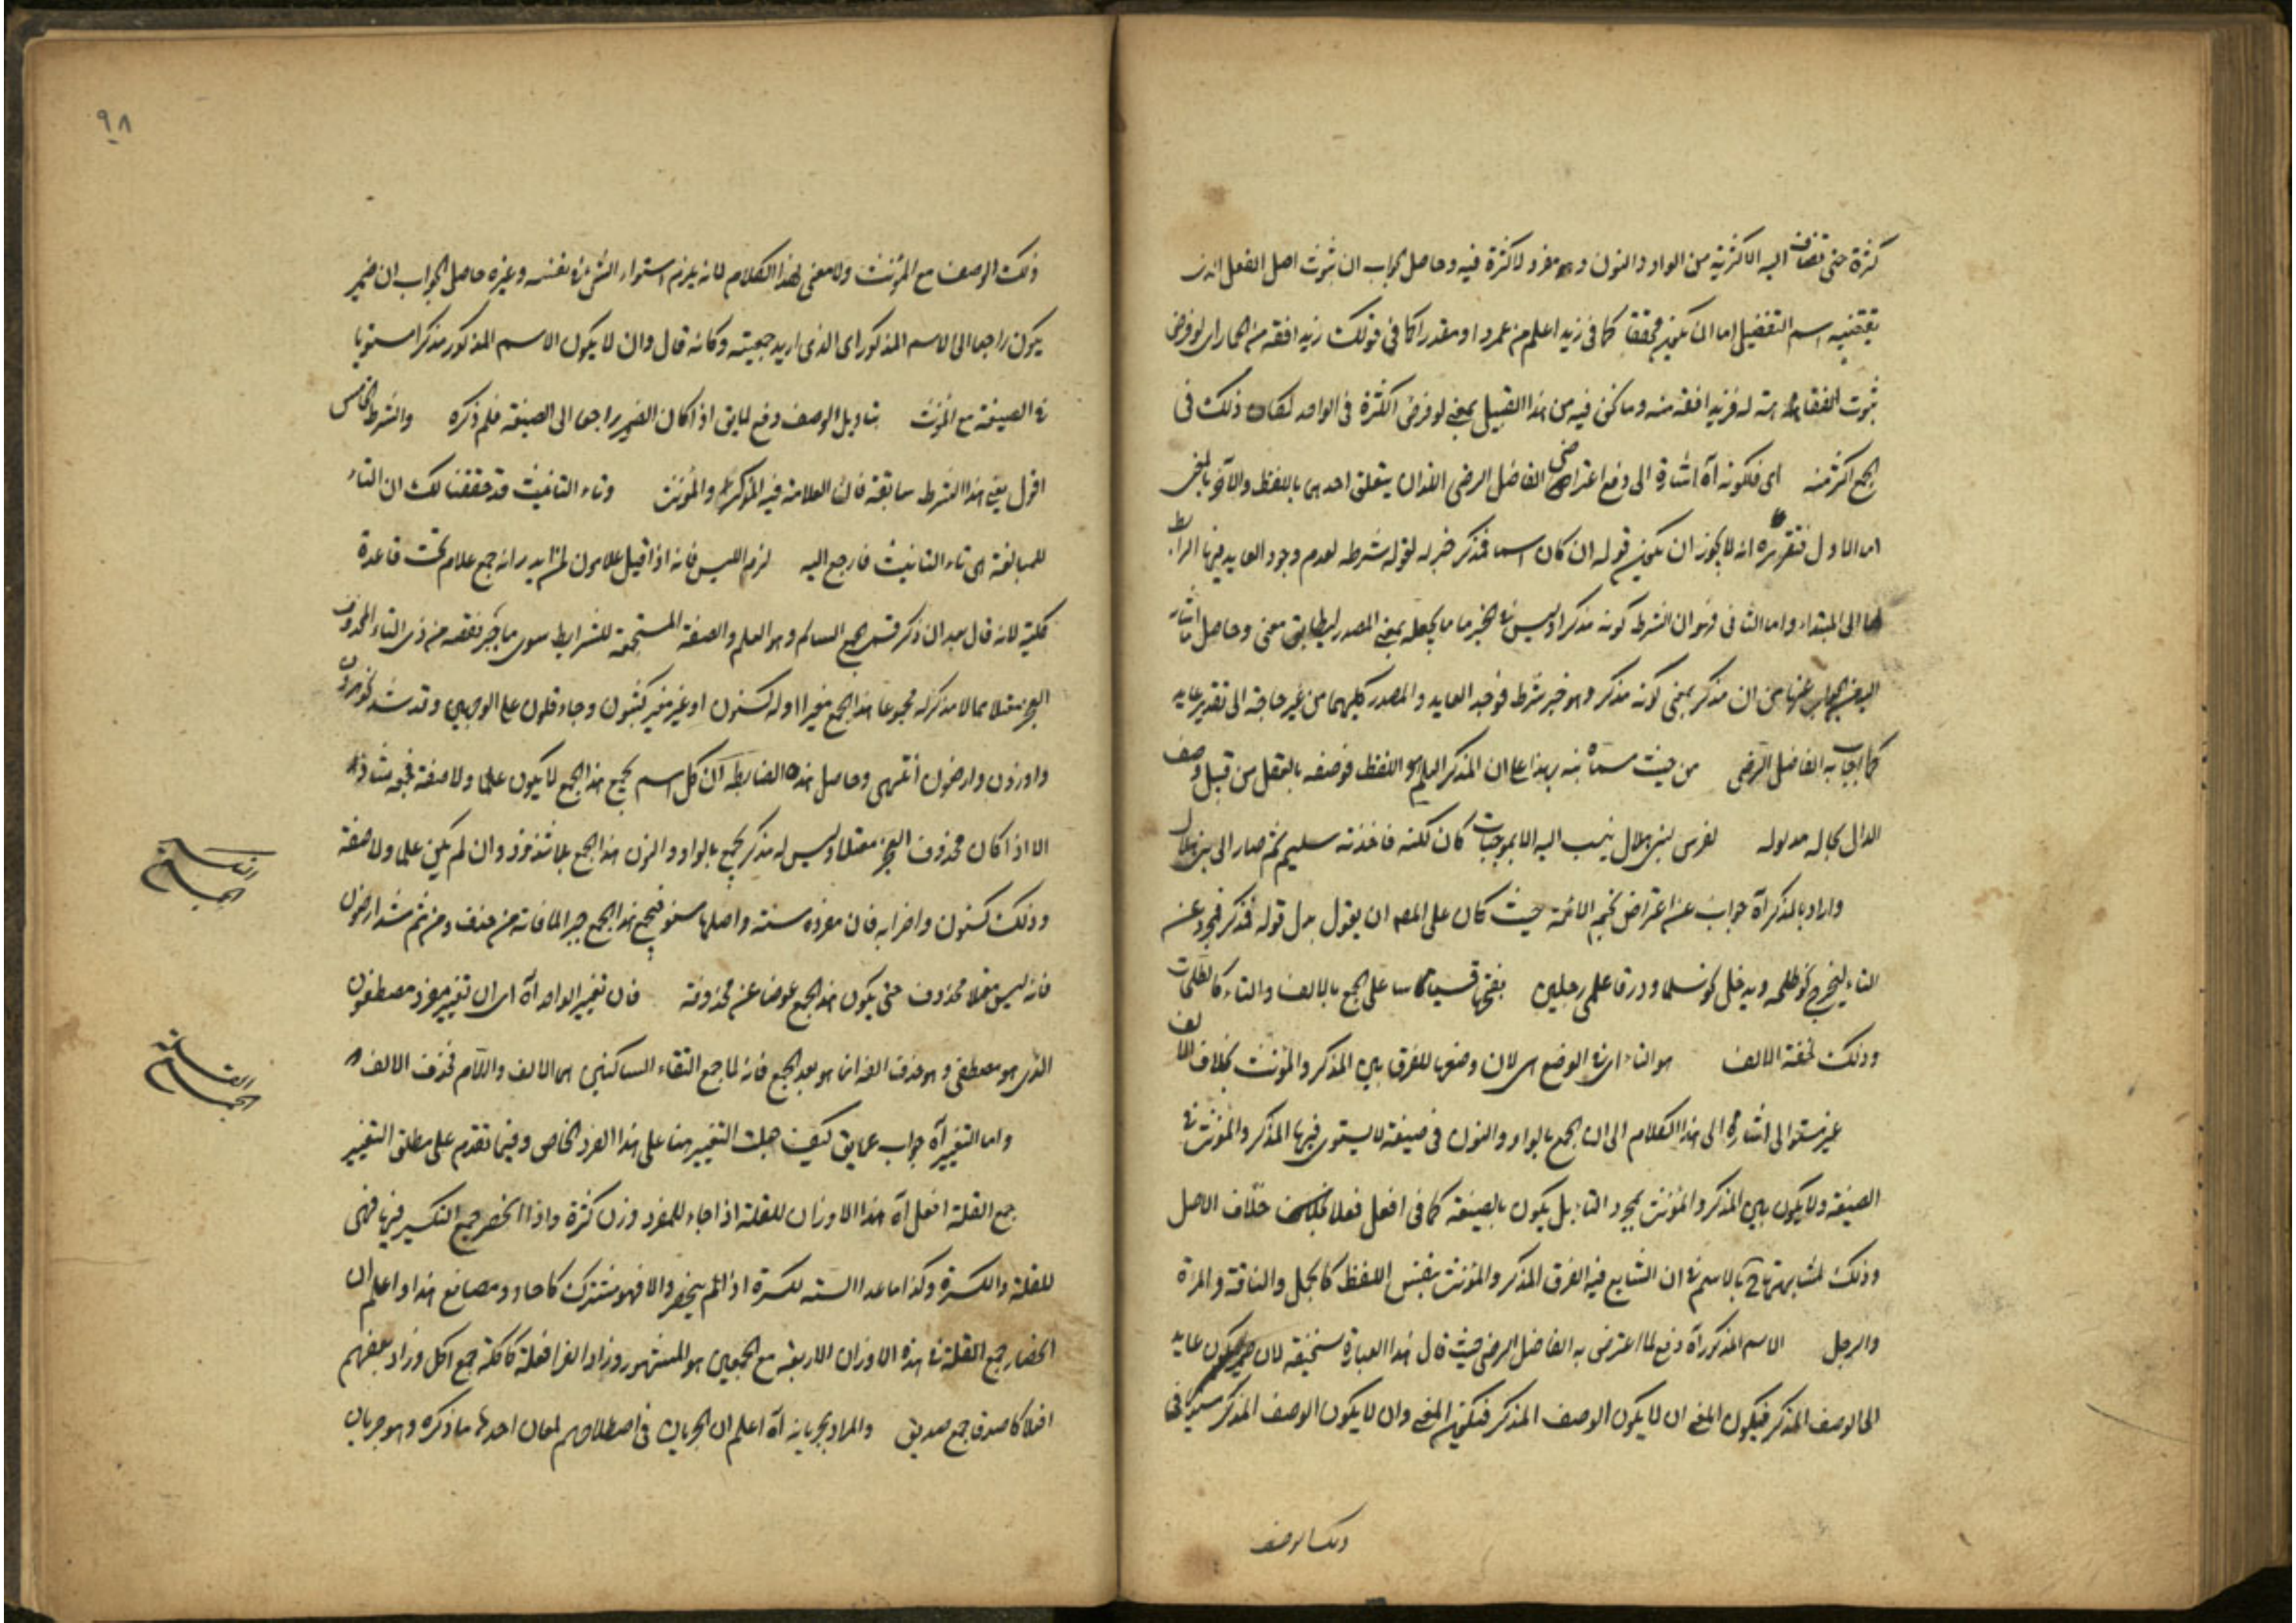 كثرة حتى تضاف اليه الاكثرية من الواو والنون و مفرد لا كثرة فيه وحاصل الجواب ان ثبوت اصل الفعل الذى
يقتضيه اسم التفضيل اما ان يكون محققا كما فى زيد اعلم من عمرو او مقدرا كما فى قولك زيد افقه من الحمار اى لو فرض
ثبوت الفقاهة له فزيد افقه منه وما نحن فيه من هذا القبيل بمعنى لو فرض الكثرة فى الواحد لكان ذلك فى
الجمع اكثر منه اى فكونه آه اشارة الى دفع اعتراضى الفاضل الرضى اللذان يتعلق احدهما باللفظ والآخر بالمعنى
اما الاول فتقريره انه لا يجوز ان يكون قوله ان كان اسما فمذكر خبر له لقوله شرطه لعدم وجود العايد فيها الرابط
لها الى المبتداء واما الثانى فهو ان الشرط كونه مذكرا وليس فى الخبر ما يجعله بمعنى المصدر ليطابق معنى وحاصل ما اشار
اليه الجواب عنهما من ان مذكر بمعنى كونه مذكر وهو خبر شرط فوجد العايد والمصدر كليهما من غير حاجة الى تقدير عايد
كما اجاب به الفاضل الرضى من حيث مسماه نبه بهذا على ان المذكر العلم هو اللفظ فوصفه بالعقل من قبيل وصف
الدال بحال مدلوله لفرس لبنى هلال ينسب اليه الاعوجيات كان لكندة فاخذته سليم ثم صار الى بنى هلال
واراد بالمذكر آه جواب عن اعتراض نجم الائمة حيث كان على المص ان يقول بدل قوله فمذكر فمجرد عن
التاء ليخرج نحو طلحة ويدخل نحو سلمى وورقا علمى رجلين بفتحها قسياسا على الجمع بالالف والتاء كالطلحات
وذلك لخفة الالف هو التاء اى فى الوضع اى لان وضعها للفرق بين المذكر والمؤنث بخلاف الالف
غير مستو الى اشارة الى هذا الكلام الى ان الجمع بالواو والنون فى صيغة لا يستوى فيها المذكر والمؤنث فى
الصيغة ولا يكون بين المذكر والمؤنث بمجرد التاء بل يكون بالصيغة كما فى افعل فعلاء خلاف الاصل
وذلك لمشابهتها بالاسم فى ان الشايع فيه الفرق المذكر والمؤنث بنفس اللفظ كالجمل والناقة والمرة
والرجل الاسم المذكور آه دفع لما اعترض به الفاضل الرضى حيث قال هذا العبارة سخيفة لان ضمير يكون عايد
الى الوصف المذكر فيكون المعنى ان لا يكون الوصف المذكر فيكون المعنى وان لا يكون الوصف المذكر مستويا فى
ذلك الوصف
٩٨
ذلك الوصف مع المؤنث ولا معنى لهذا الكلام لانه يلزم استواء الشئ فى نفسه وغيره حاصل الجواب ان ضمير
يكون راجعا الى الاسم المذكور اى الذى اريد جمعيته وكانه قال وان لا يكون الاسم المذكور مذكرا مستويا
فى الصيغة مع المؤنث بتاويل الوصف دفع لما يق اذا كان الضمير راجعا الى الصيغة فلم ذكره والشرط الخامس
اقول يغنى هذا الشرط سابقة فان العلامة فيه المذكر والمؤنث وتاء التانيث قد حققنا لك ان التاء
للمبالغة اى تاء التانيث فارجع اليه لزم اللبس فانه اذا قيل علامون لم يدر انه جمع علام تحت قاعدة
كلية لانه قال بعد ان ذكر قسمى الجمع السالم وهو العلم والصفة المستجمعة للشرايط سوى ما جبر نقصه من ذى التاء المحذوف
العجز معتلا مما لا مذكر له مجموعا هذا الجمع مغيرا اوله كسنون او غير مغير كثبون وجاء قلون على الوجهين وقد شذ نحو حرون
واوزون وارضون انتهى وحاصل هذه الضابطة ان كل اسم يجمع هذا الجمع لا يكون علما ولا صفة فجمعه شاذ
الا اذا كان محذوف العجز معتلا وليس له مذكر يجمع بالواو والنون هذا الجمع بلا شذوذ وان لم يكن علما ولا صفة
وذلك كسنون واضرابه فان مفرده سنة واصلها سنو فيجمع هذا الجمع جبرا لما فاته من حذف ومن ثم شذ ارضون
فانه ليس معتلا محذوف حتى يكون هذا الجمع عوضا عن محذوفه فان تغير الواحد آه اى ان تغير مفرد مصطفون
الذى هو مصطفى وهو حذف الفه انما هو بعد الجمع فانه لما جمع التقاء الساكنين اى الالف واللام فحذف الالف
واما التغيير آه جواب عما يق كيف حملت التغيير هنا على هذا الفرد الخاص وفيما تقدم على مطلق التغيير
جمع القلة افعل آه هذا الاوزان للقلة اذا جاء للمفرد وزن كثرة واذا انحصر جمع التكسير فيها فهى
للقلة والكثرة وكذا ما عدا الستة للكثرة اذا لم ينحصر والا فهو مشترك كاحاد ومصانع هذا واعلم ان
انحصار جمع القلة فى هذه الاوزان الاربعة مع الجمعين هو المشهور وزاد الفرا فعلة كاكلة جمع اكل وزاد بعضهم
افعلا كاصدقا جمع صديق والمراد بجريانه آه اعلم ان الجريان فى اصطلاحهم لمعان احدها ما ذكره وهو جريان